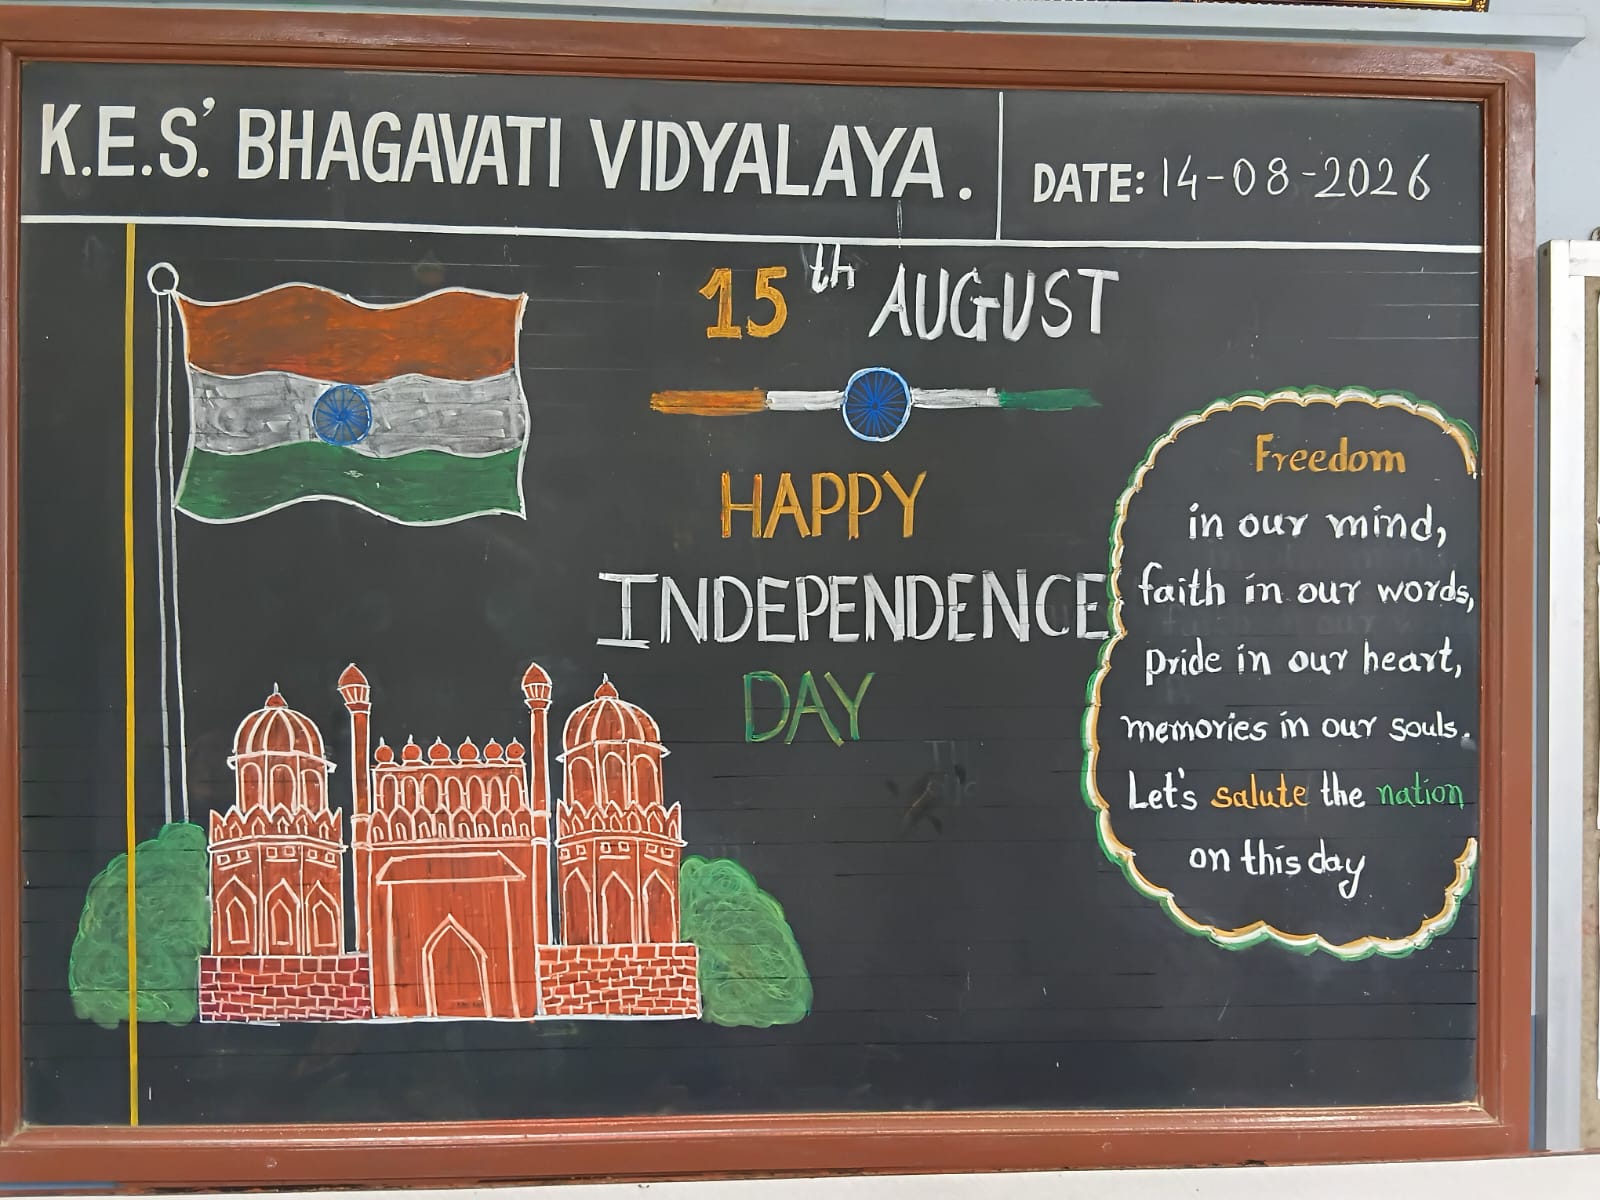 K.E.S'. BHAGAVATI VIDYALAYA.
DATE: 14-08-2026
15th AUGUST
HAPPY
INDEPENDENCE
DAY
Freedom
in our mind,
faith in our words,
pride in our heart,
memories in our souls.
Let's salute the nation
on this day